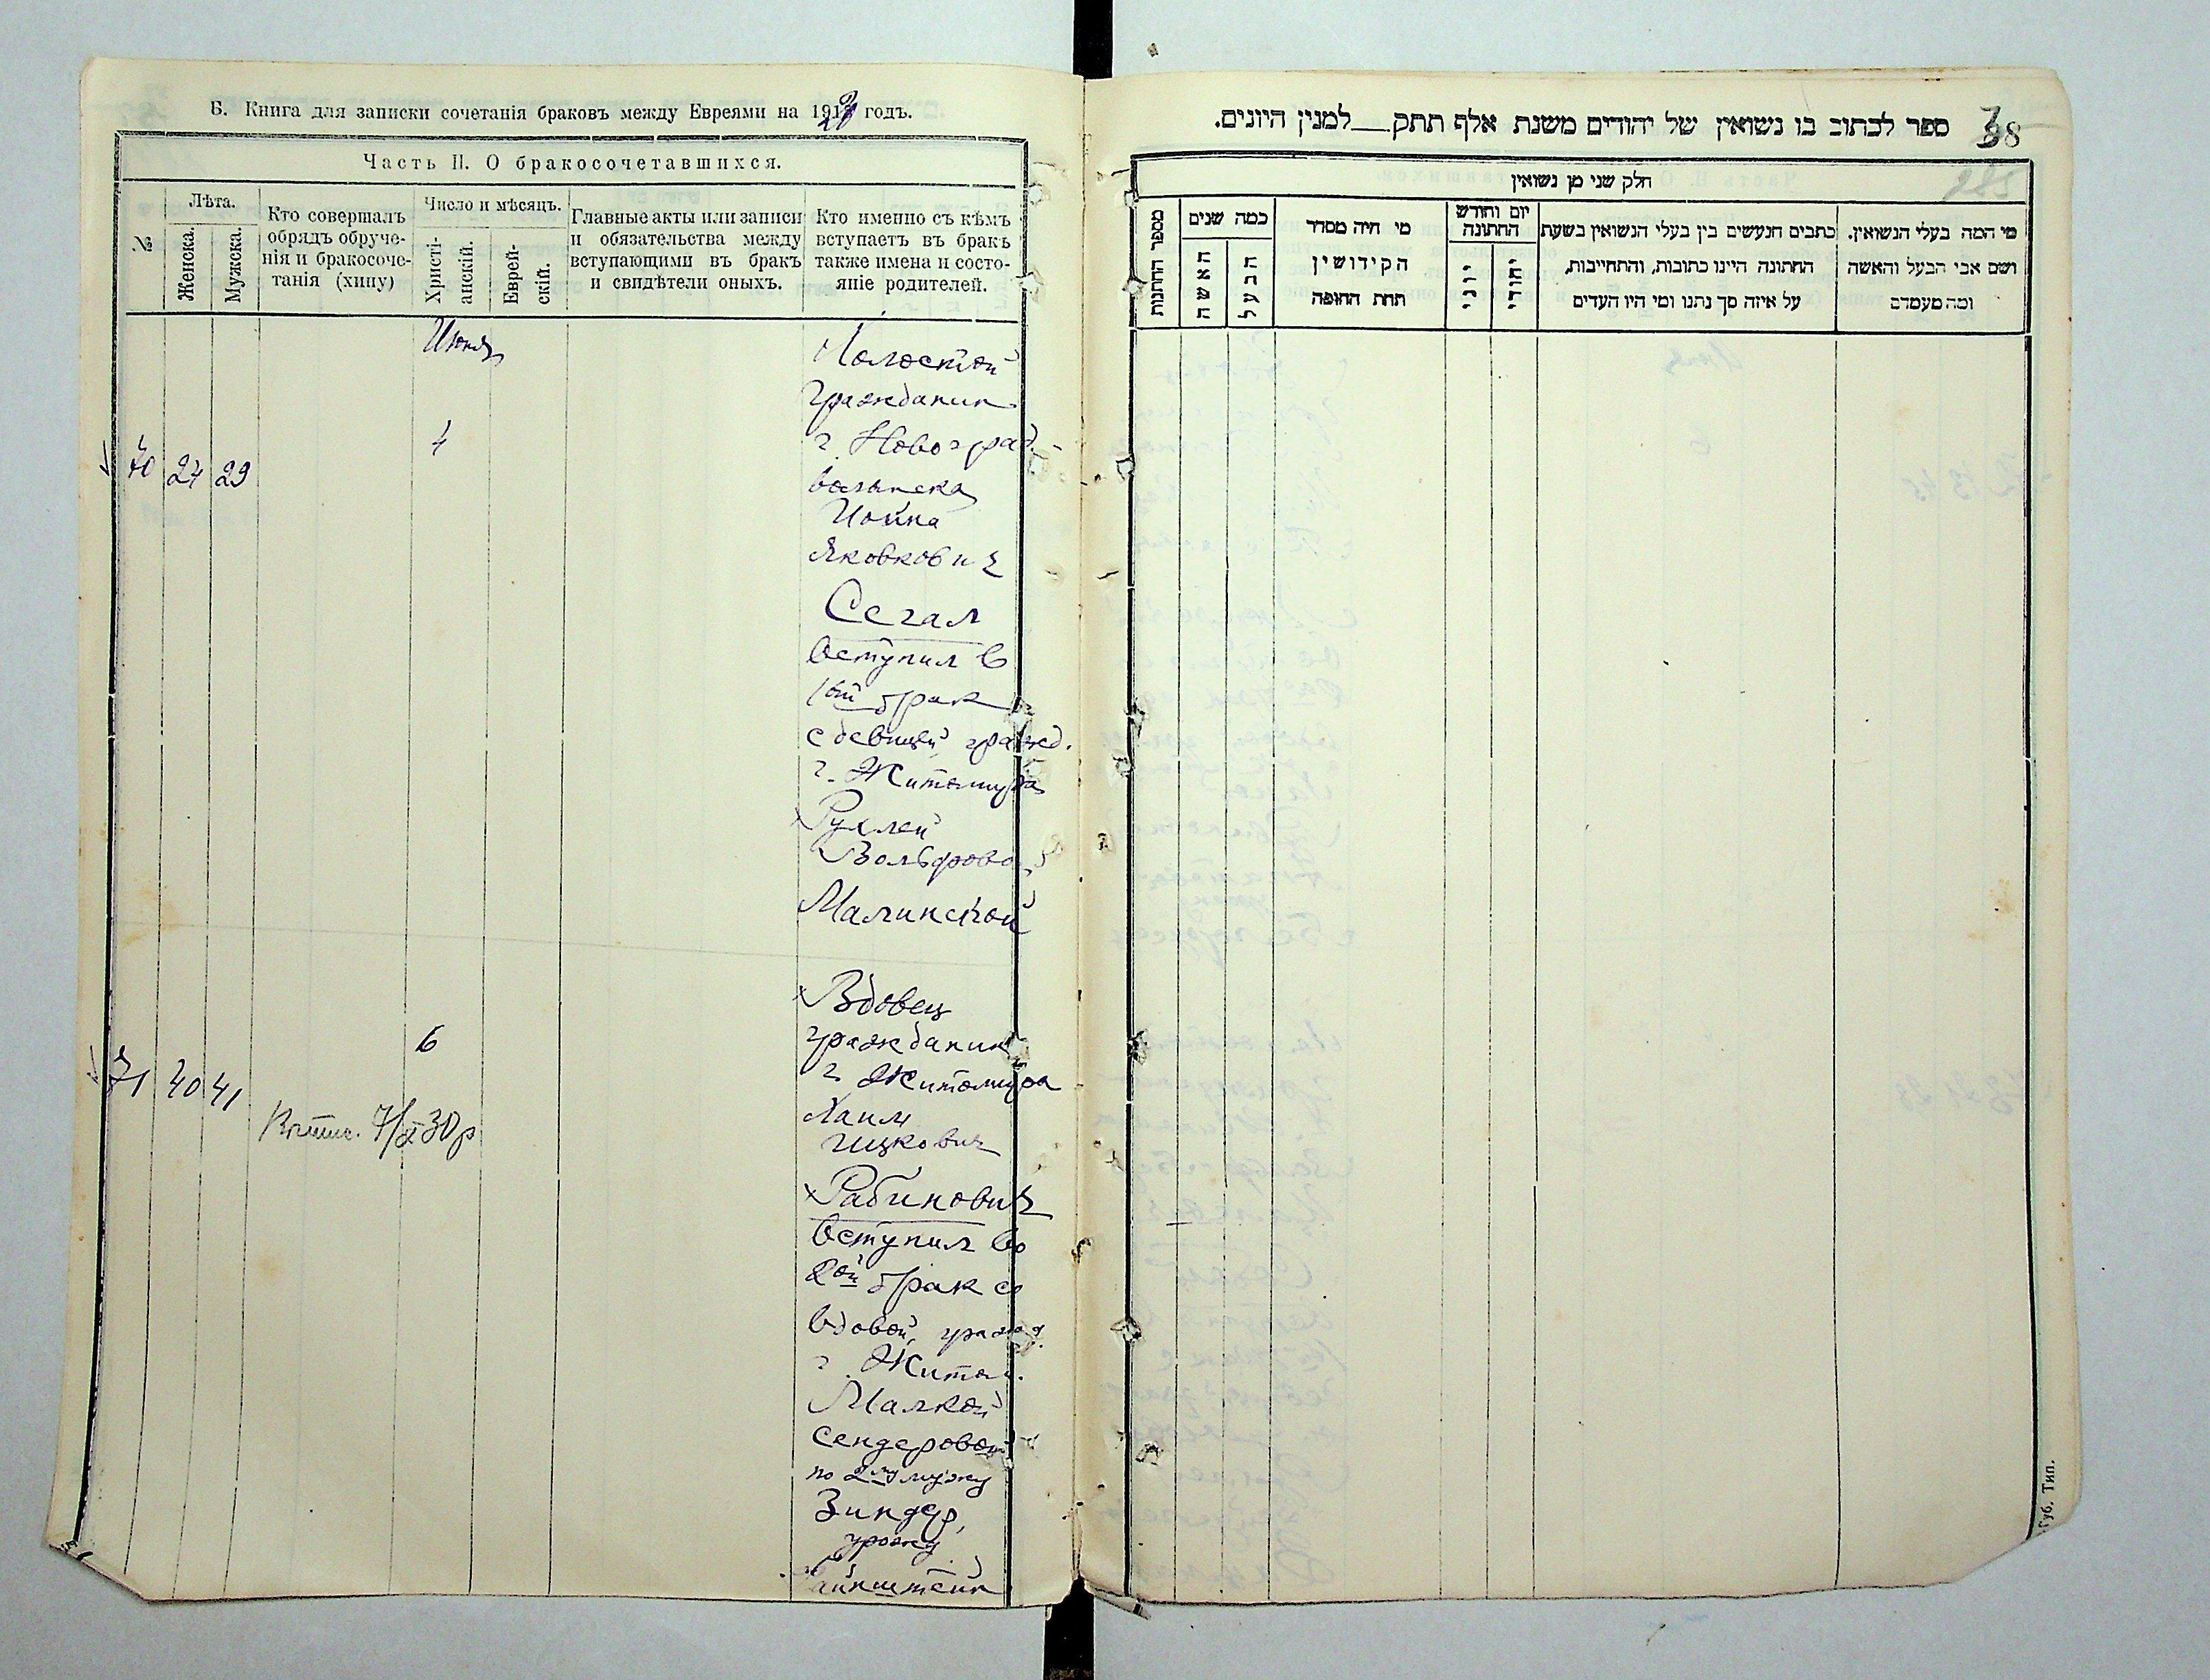 Б. Книга для записки сочетанія браковъ между Евреями на 191 годъ.
Часть II. О бракосочетавшихся.
№
Лѣта.
Женска.
Мужска.
Кто совершалъ
обрядъ обруче-
нія и бракосоче-
танія (хипу)
Число и мѣсяцъ.
Христі-
анскій.
Еврей-
скій.
Главные акты или записи
и обязательства между
вступающими въ бракъ
и свидѣтели оныхъ.
Кто именно съ кѣмъ
вступаетъ въ бракъ
также имена и состо-
яніе родителей.
70
24
29
Июня
4
Холостой
гражданин
г. Новоград.
волынска
Иойна
Яковкович
Сегал
вступил в
1ой брак
с девицей гражд.
г. Житомира
Рухлей
Вольфовой
Малинской
71
40
41
6
30 р
Вдовец
гражданин
г. Житомира
Хаим
Ицкович
Рабинович
вступил во
2ой брак со
вдовой, гражд.
г. Житом.
Малкой
Сендеровой
по 2му мужу
Зиндер,
урожд
йнштейн
ספר לכתוב בו נשואין של יהודים משנת אלף תתק למנין היונים.
38
285
חלק שני מן נשואין
מספר החתנות
כמה שנים
האשה
הבעל
מי היה מסדר
הקידושין
תחת החופה
יום וחודש
החתונה
יוני
יהודי
כתבים הנעשים בין בעלי הנשואין בשעת
החתונה היינו כתובות, והתחייבות,
על איזה סך נתנו ומי היו העדים
מי המה בעלי הנשואין.
ושם אבי הבעל והאשה
ומה מעמדם
Губ. Тип.